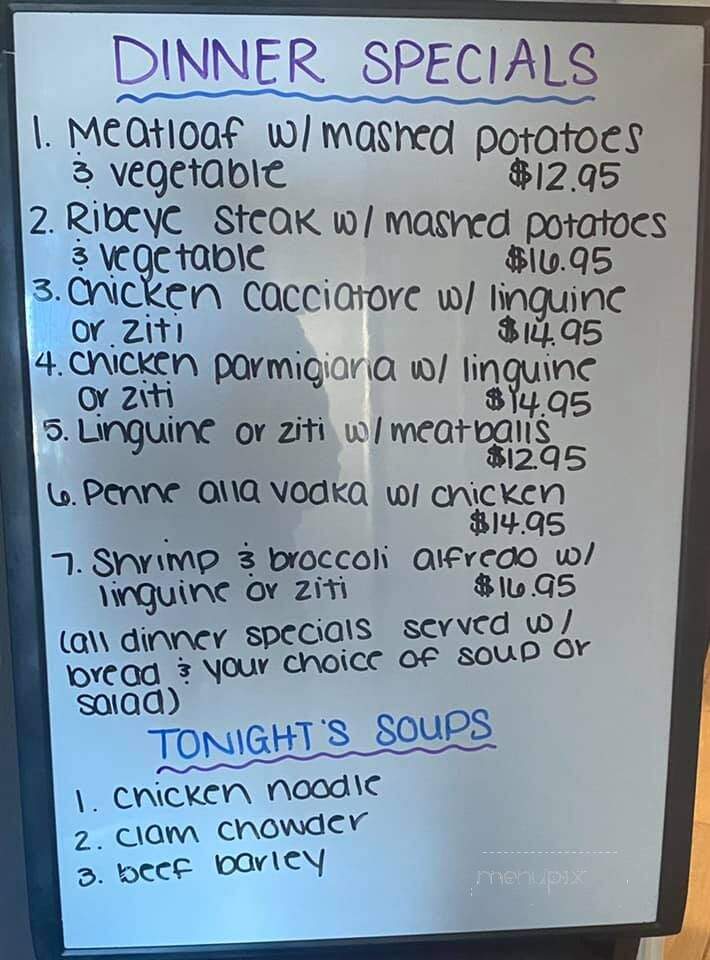 DINNER SPECIALS
1. Meatloaf w/ mashed potatoes
& vegetable $12.95
2. Ribeye steak w/ mashed potatoes
& vegetable $16.95
3. Chicken cacciatore w/ linguine
or ziti $14.95
4. Chicken parmigiana w/ linguine
or ziti $14.95
5. Linguine or ziti w/ meatballs
$12.95
6. Penne alla vodka w/ chicken
$14.95
7. Shrimp & broccoli alfredo w/
linguine or ziti $16.95
(all dinner specials served w/
bread & your choice of soup or
salad)
TONIGHT'S SOUPS
1. chicken noodle
2. clam chowder
3. beef barley
menupix